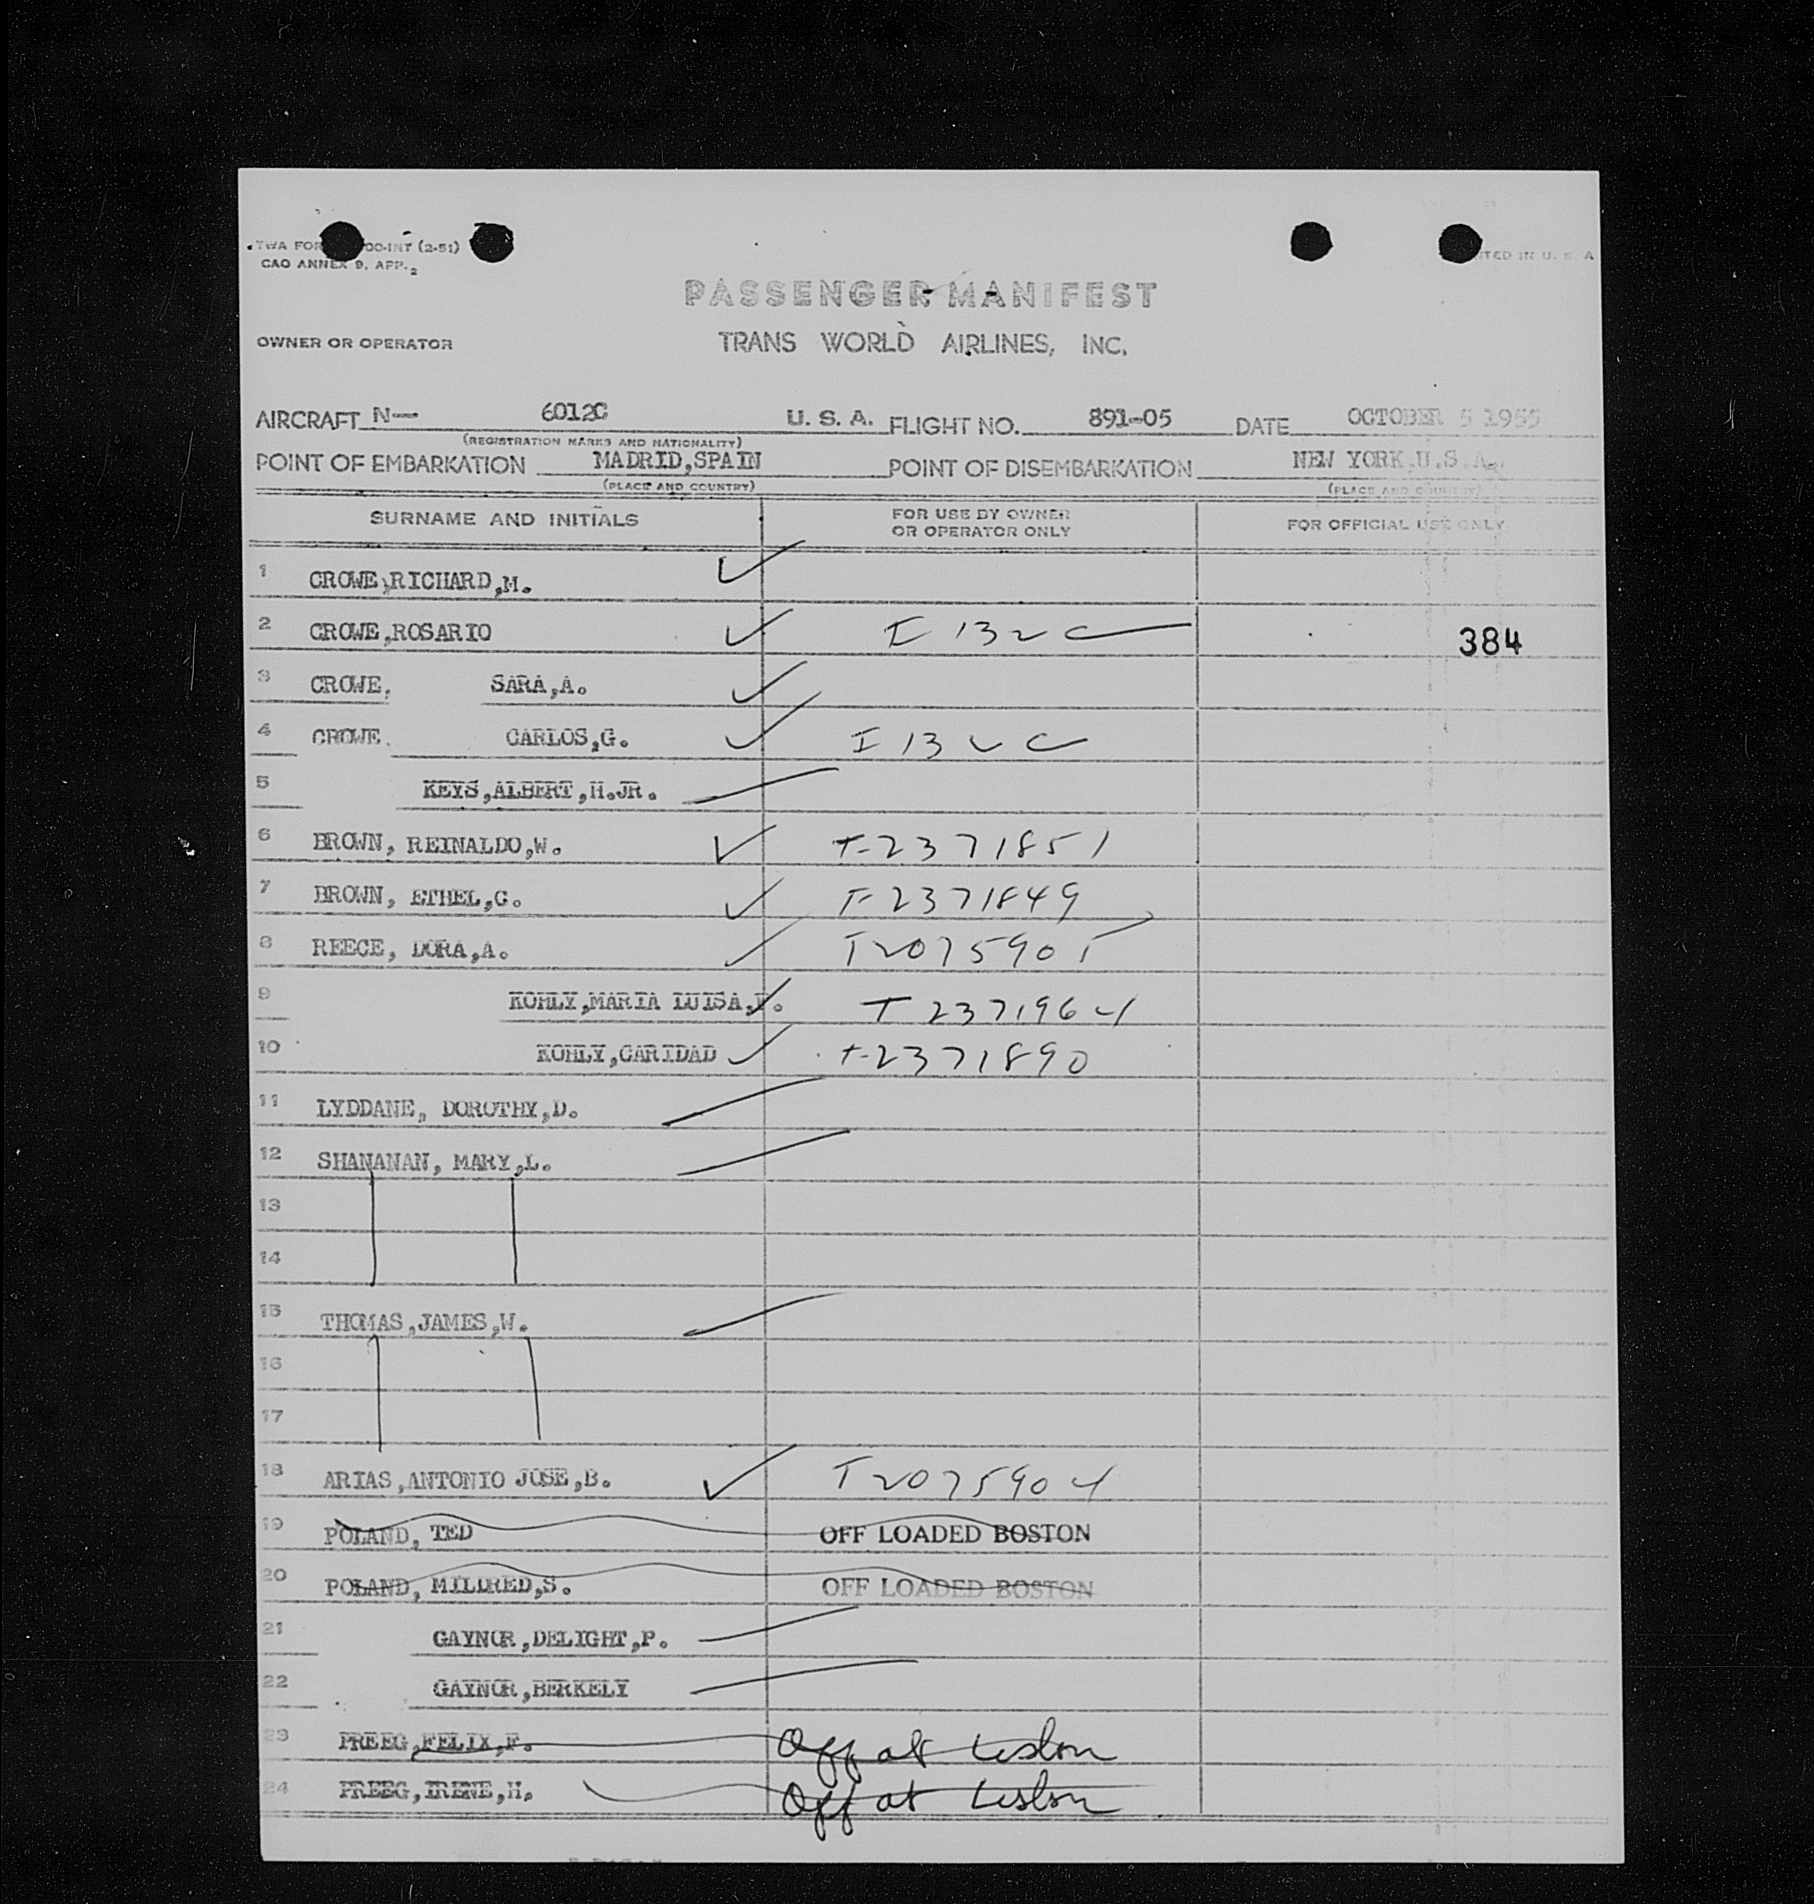 TWA FOR 00-INT (2-51)
CAO ANNEX 9, APP. 2
TED IN U. S. A
PASSENGER MANIFEST
OWNER OR OPERATOR TRANS WORLD AIRLINES, INC.
AIRCRAFT N— 6012C U. S. A. FLIGHT NO. 891-05 DATE OCTOBER 5 1955
(REGISTRATION MARKS AND NATIONALITY)
POINT OF EMBARKATION MADRID,SPAIN POINT OF DISEMBARKATION NEW YORK,U.S.A.
(PLACE AND COUNTRY) (PLACE AND COUNTRY)
SURNAME AND INITIALS FOR USE BY OWNER OR OPERATOR ONLY FOR OFFICIAL USE ONLY
1 CROWE,RICHARD,M.
2 CROWE,ROSARIO I 132 C 384
3 CROWE, SARA,A.
4 CROWE, CARLOS,G. I 132 C
5 KEYS,ALBERT,H.JR.
6 BROWN, REINALDO,W. T-2371851
7 BROWN, ETHEL,G. T-2371849
8 REECE, DORA,A. T2075905
9 KOHLY,MARIA LUISA, T 2371964
10 KOHLY,CARIDAD T-2371890
11 LYDDANE, DOROTHY,D.
12 SHANANAN, MARY,L.
13
14
15 THOMAS,JAMES,W.
16
17
18 ARIAS,ANTONIO JOSE,B. T2075904
19 POLAND, TED OFF LOADED BOSTON
20 POLAND, MILDRED,S. OFF LOADED BOSTON
21 GAYNOR,DELIGHT,P.
22 GAYNOR,BERKELY
23 PREEG,FELIX,F. Off at Lisbon
24 PREEG,IRENE,H. Off at Lisbon